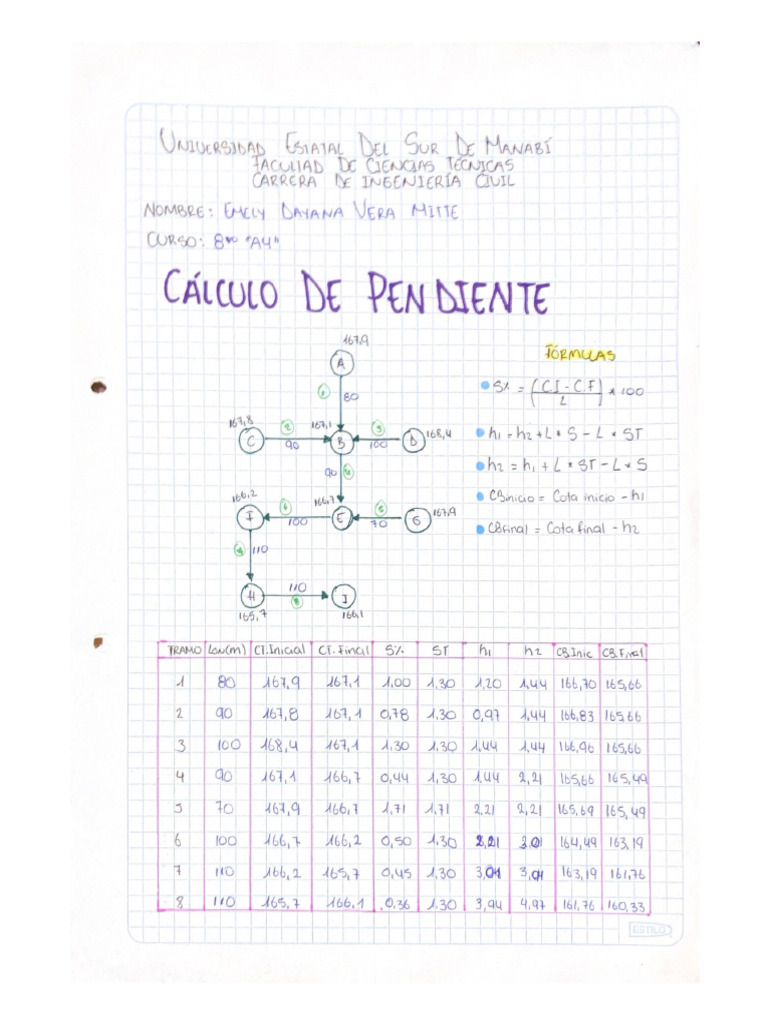 UNIVERSIDAD ESTATAL DEL SUR DE MANABÍ
FACULTAD DE CIENCIAS TÉCNICAS
CARRERA DE INGENIERÍA CIVIL
NOMBRE: EMELY DAYANA VERA MITTE
CURSO: 8vo "A4"
CÁLCULO DE PENDIENTE
167,9
A
FÓRMULAS
1
80
S% = (C.I - C.F / L) * 100
167,8
2
167,1
3
168,4
C
90
B
100
D
h1 = h2 + L * S - L * ST
90
4
h2 = h1 + L * ST - L * S
166,2
6
166,7
5
167,9
CBinicio = Cota inicio - h1
I
100
E
70
G
CBFinal = Cota final - h2
110
H
110
8
I
165,7
166,1
TRAMO Lon(m) CT.Inicial CT.Final S% ST h1 h2 CB.Inic CB.Final
1 80 167,9 167,1 1,00 1,30 1,20 1,44 166,70 165,66
2 90 167,8 167,1 0,78 1,30 0,97 1,44 166,83 165,66
3 100 168,4 167,1 1,30 1,30 1,44 1,44 166,96 165,66
4 90 167,1 166,7 0,44 1,30 1,44 2,21 165,66 165,49
5 70 167,9 166,7 1,71 1,71 2,21 2,21 165,69 165,49
6 100 166,7 166,2 0,50 1,30 2,21 3,01 164,49 163,19
7 110 166,2 165,7 0,45 1,30 3,01 3,91 163,19 161,76
8 110 165,7 166,1 .0,36 1.30 3,94 4,97 161,76 160,33
ESTILO